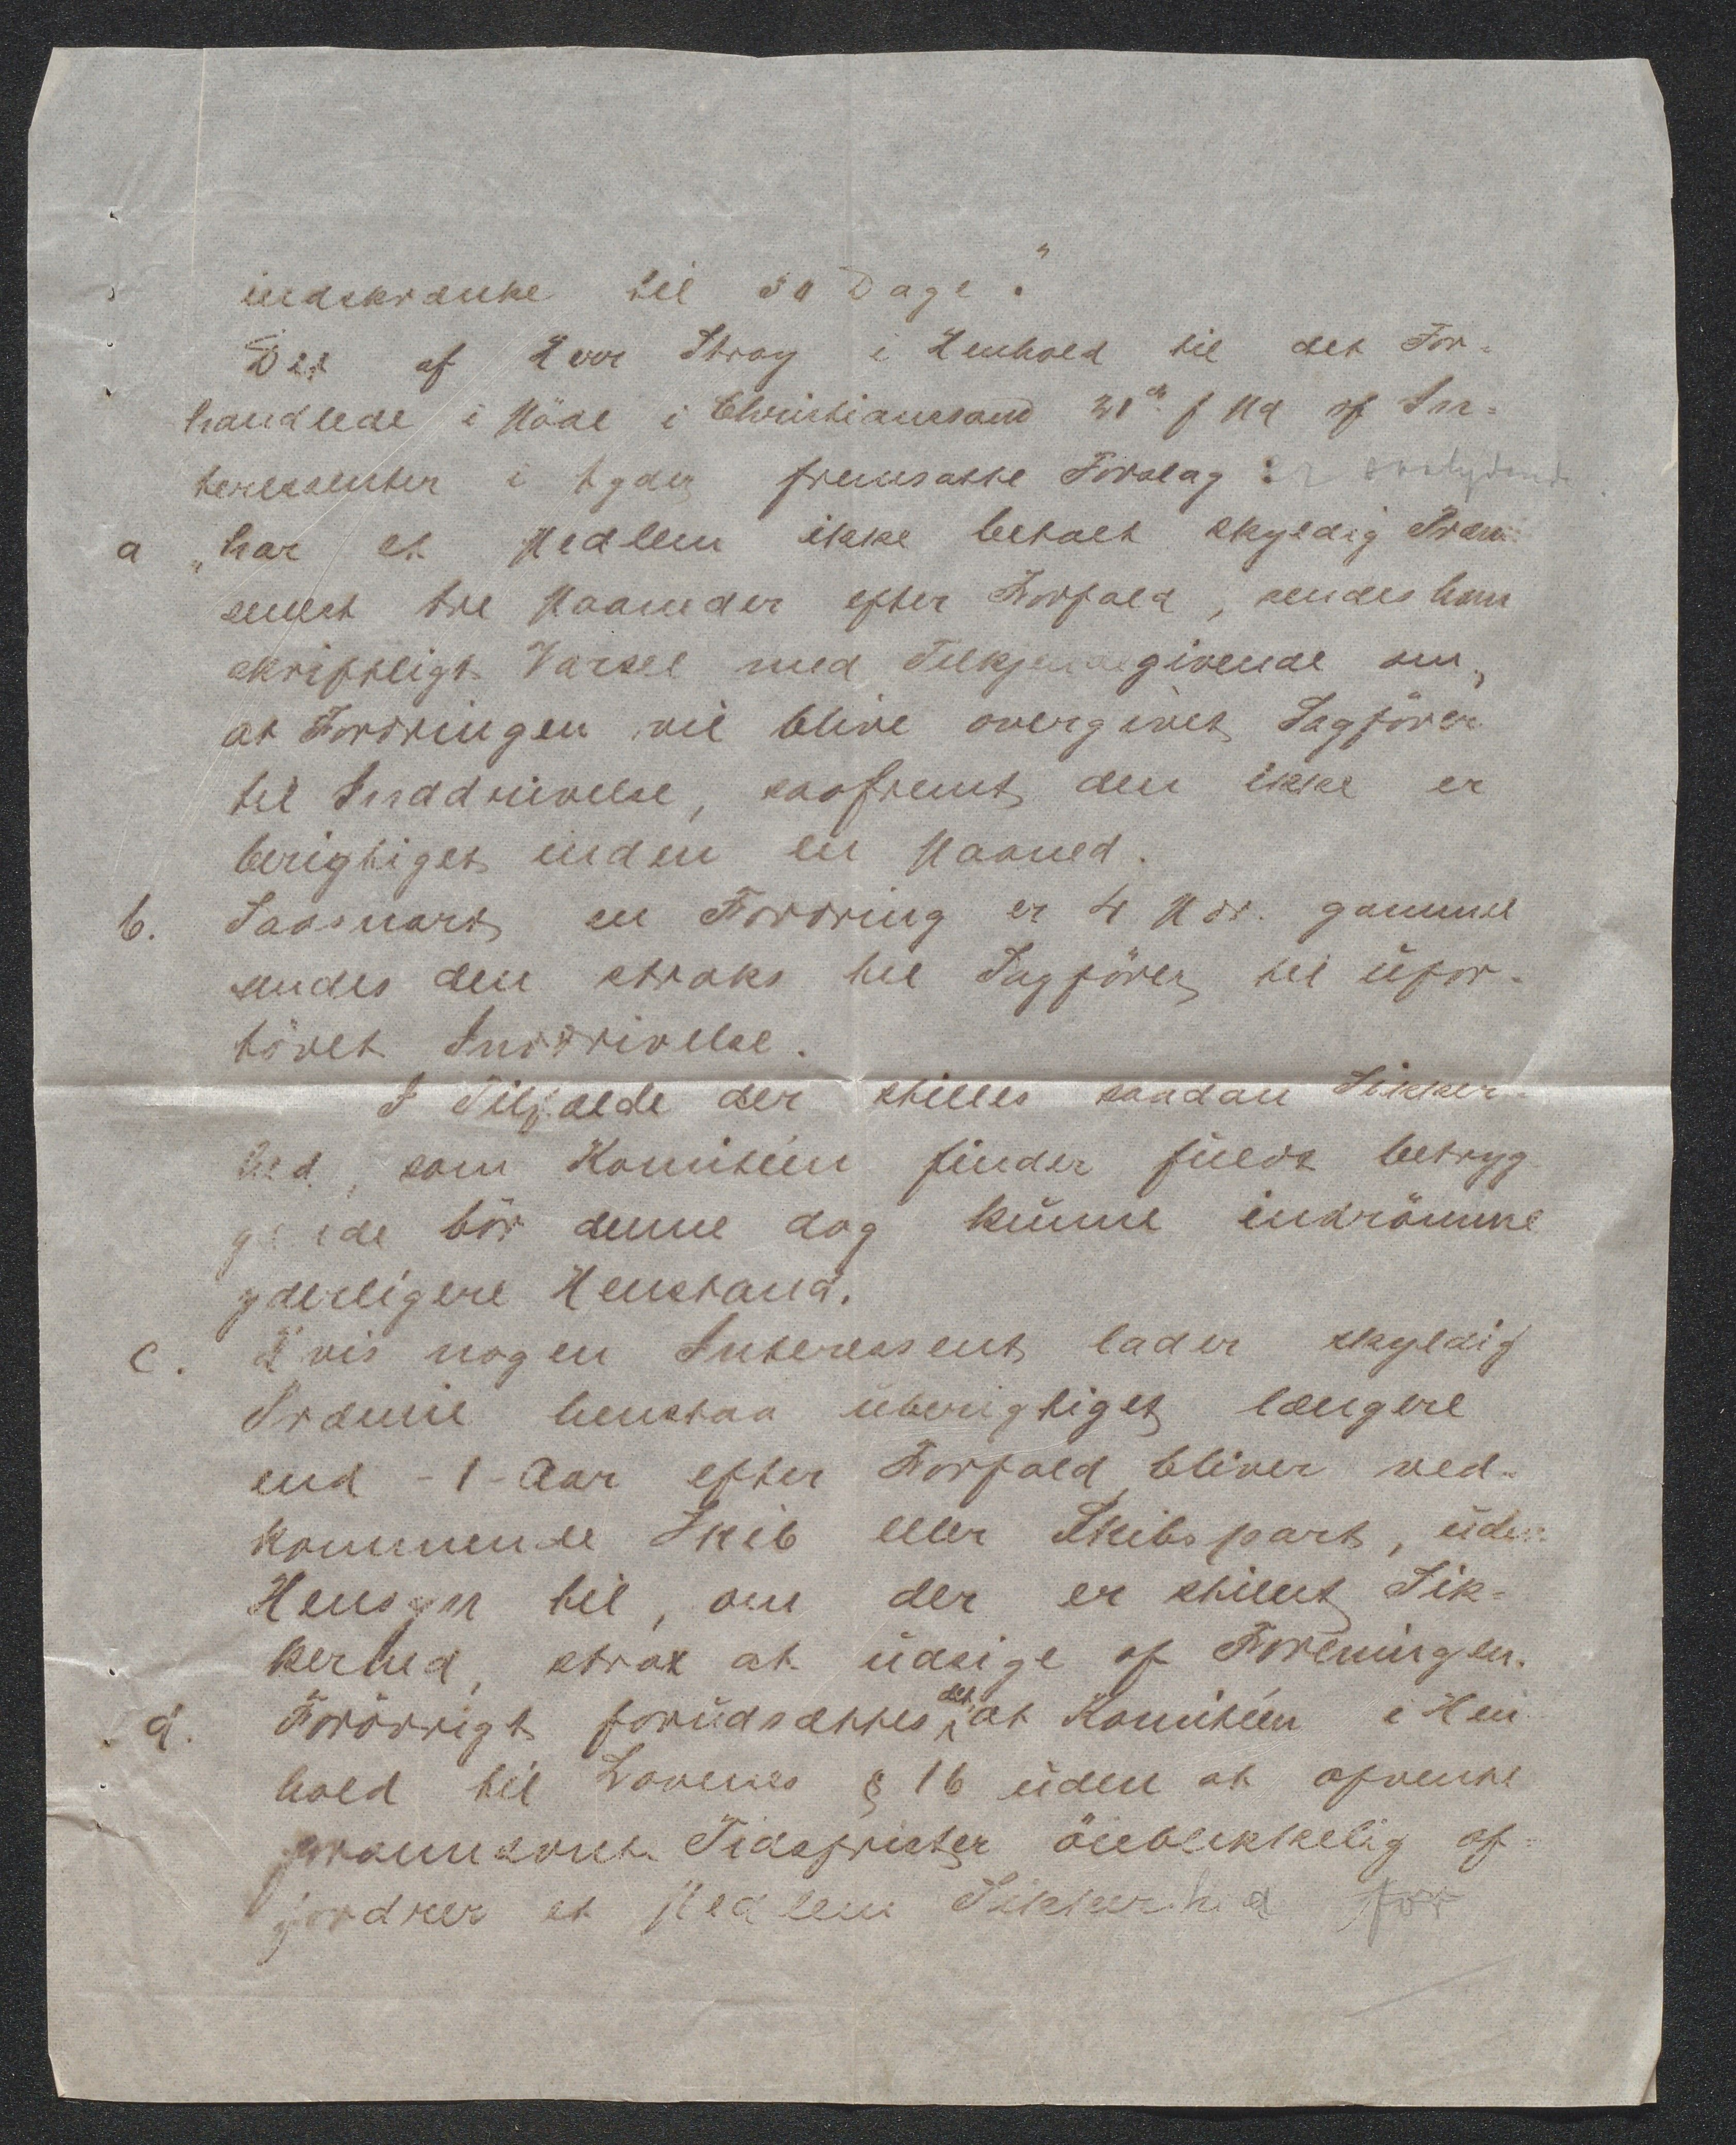 indskrænke til 30 Dage."
Det af Herr Stray i Henhold til det For-
handlede i Möde i Christianssand 21de f Md af In-
teressenter i Agder fremsatte Forslag : er saalydende
a „har et Medlem ikke betalt skyldig Præmie
senest tre Maaneder efter Forfald, sendes ham
skriftligt Varsel med Tilkjendegivende om,
at Fordringen vil blive overgivet Sagförer
til Inddrivelse, saafremt den ikke er
berigtiget inden en Maaned.
b. Saasnart en Fordring er 4 Mdr. gammel
sendes den straks til Sagförer til ufor-
tövet Inddrivelse.
I Tilfælde der stilles saadan Sikker-
hed, som Komitéen finder fuldt betryg
gende bör denne dog kunne indrömme
yderligere Henstand.
c. Hvis nogen Interessent lader skyldig
Præmie henstaa uberigtiget længere
end -1- Aar efter Forfald bliver ved-
kommende Skib eller Skibspart, uden
Hensyn til, om der er stillet Sik-
kerhed, strax at udsige af Foreningen.
d. Forövrigt forudsættes det at Komitéen i Hen
hold til Lovenes § 16 uden at afvente
Tidsfrister öieblikkelig af-
fordrer et Medlem Sikkerhed for